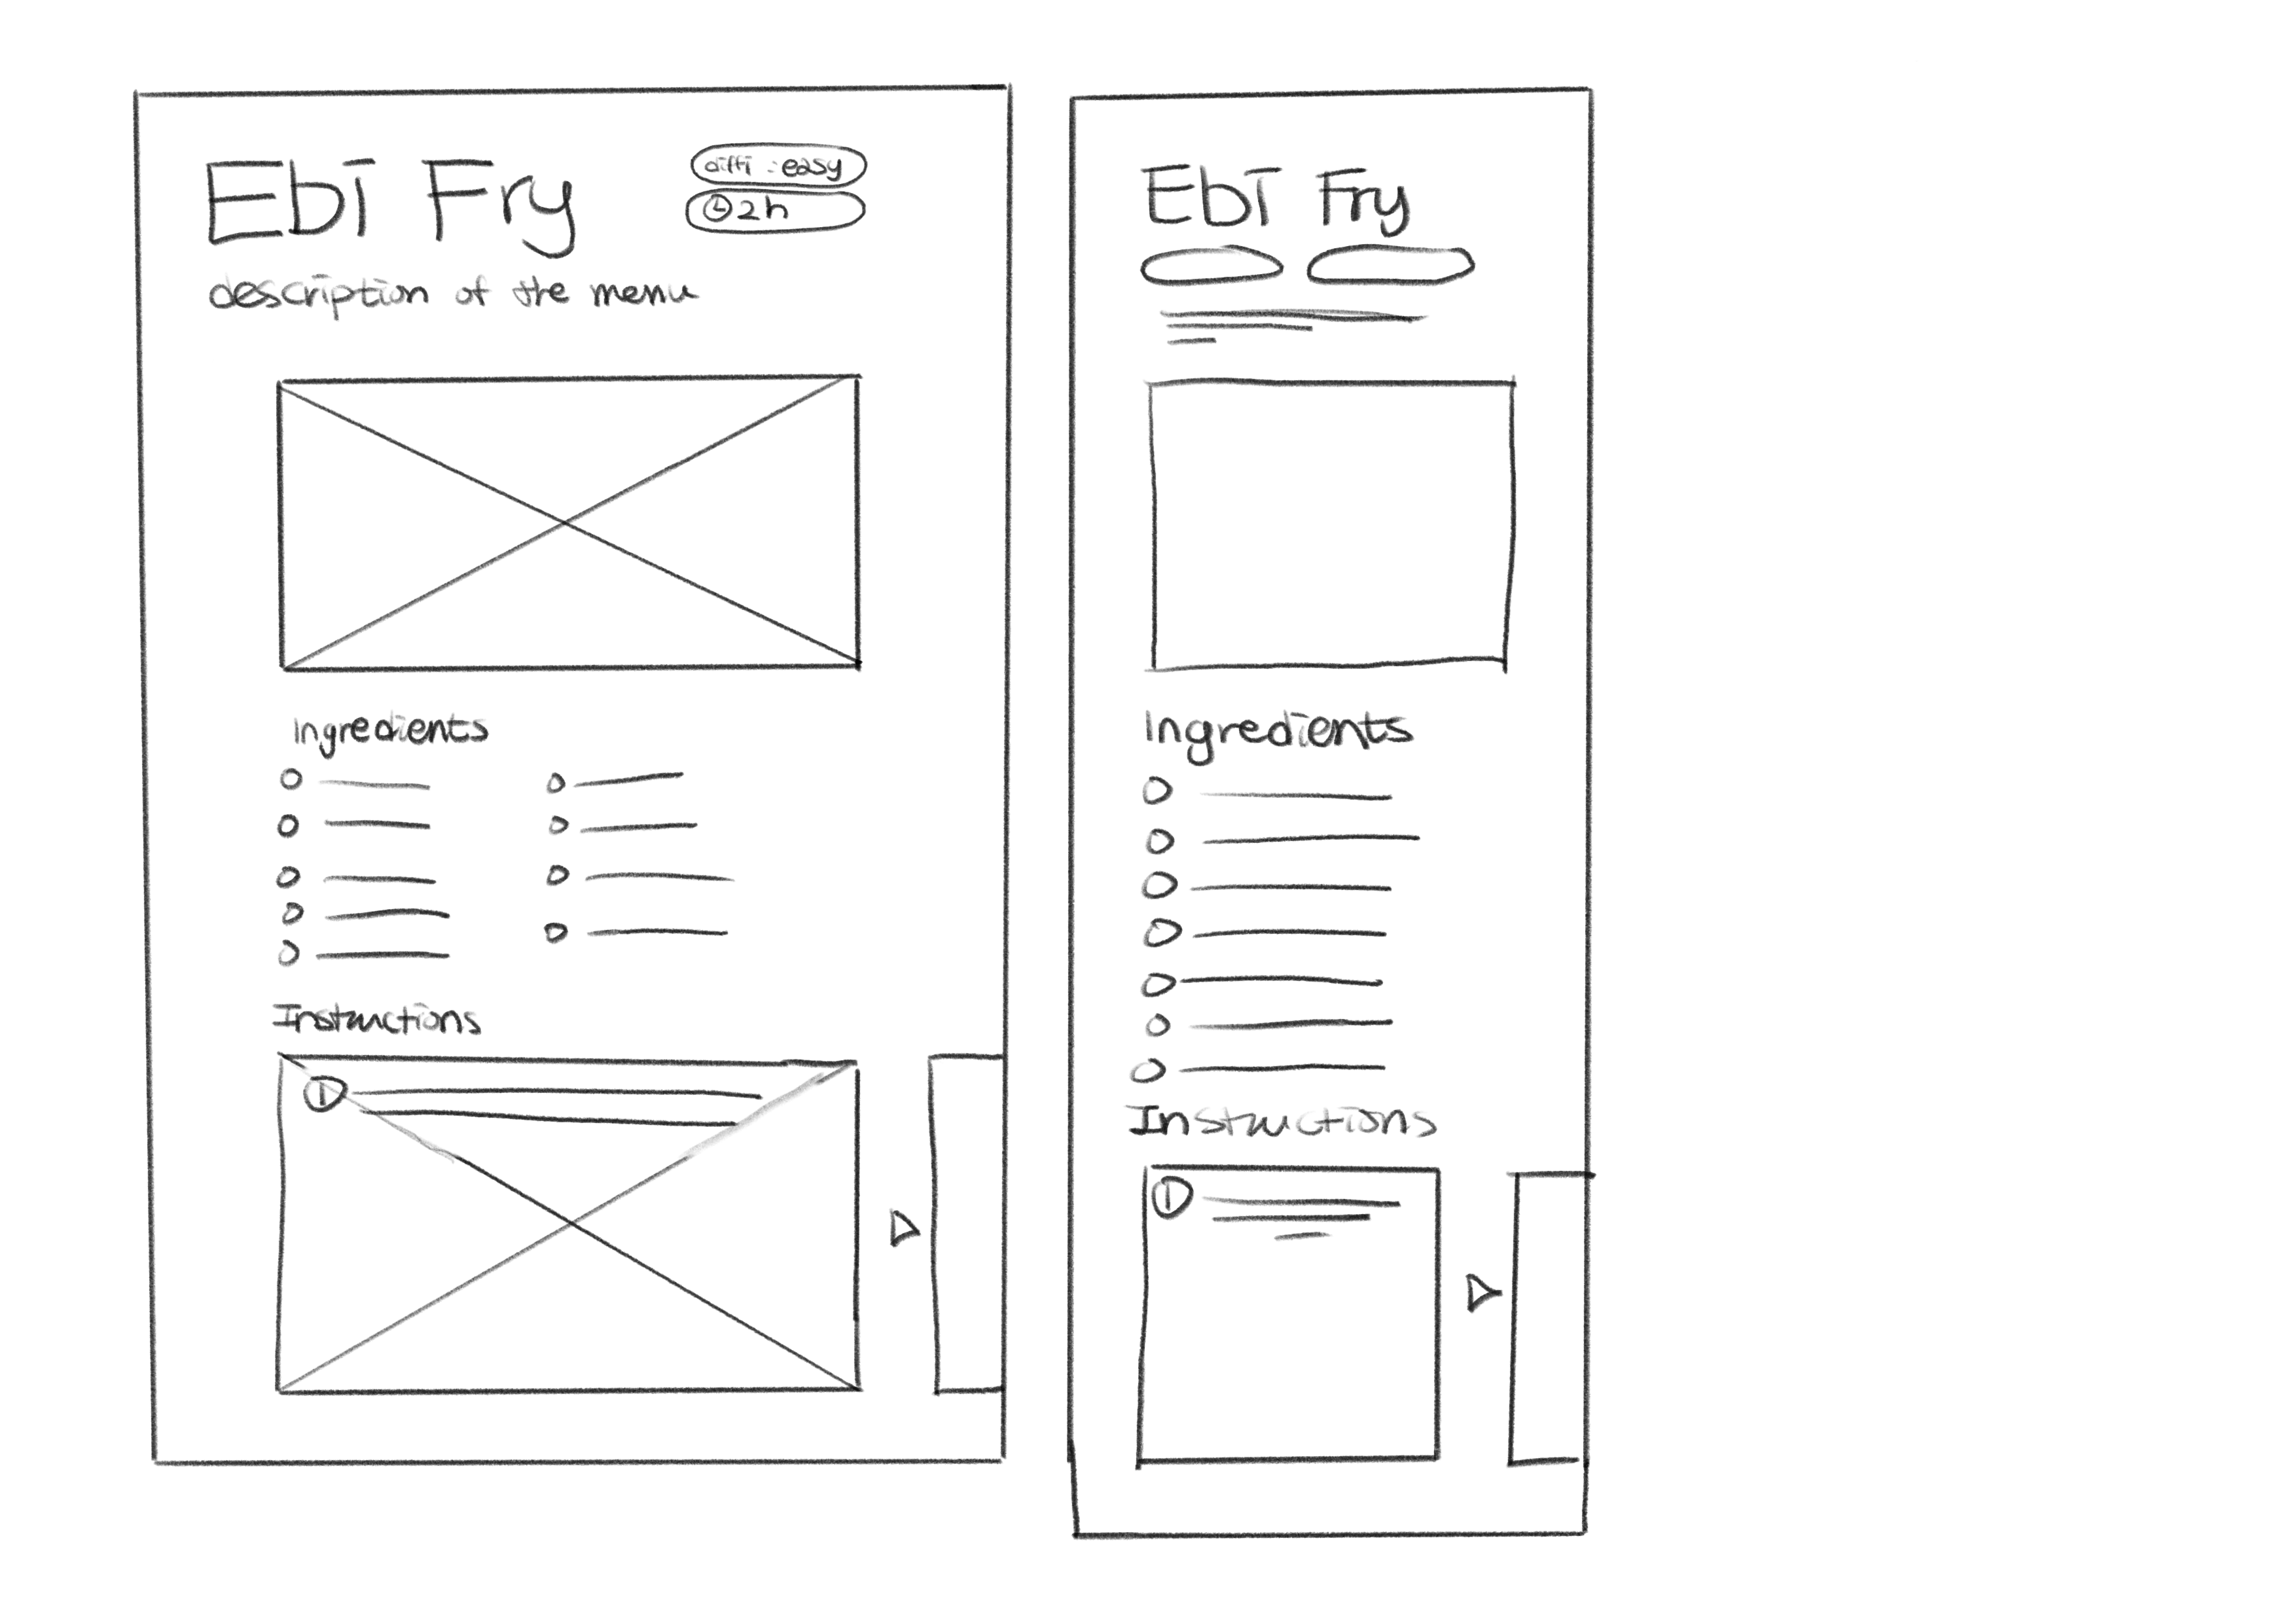 Ebi Fry
diffi : easy
2h
description of the menu
Ingredients
Instructions
1
Ebi Fry
Ingredients
Instructions
1